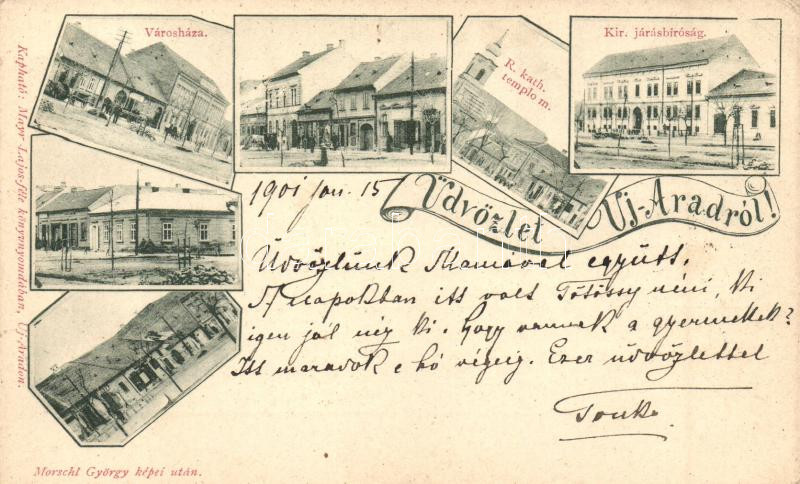 Városháza.
R. kath.
templom.
Kir. járásbiróság.
Kapható: Mayr Lajos-féle könyvnyomdában, Uj-Aradon.
Üdvözlet
Uj-Aradról!
1901 jan. 15
Üdvözlünk Mamával együtt.
A napokban itt volt Tótössy néni, ki
igen jól néz ki. Hogy vannak a gyermekek?
Itt maradok e hó végeig. Ezer üdvözlettel
Morschl György képei után.